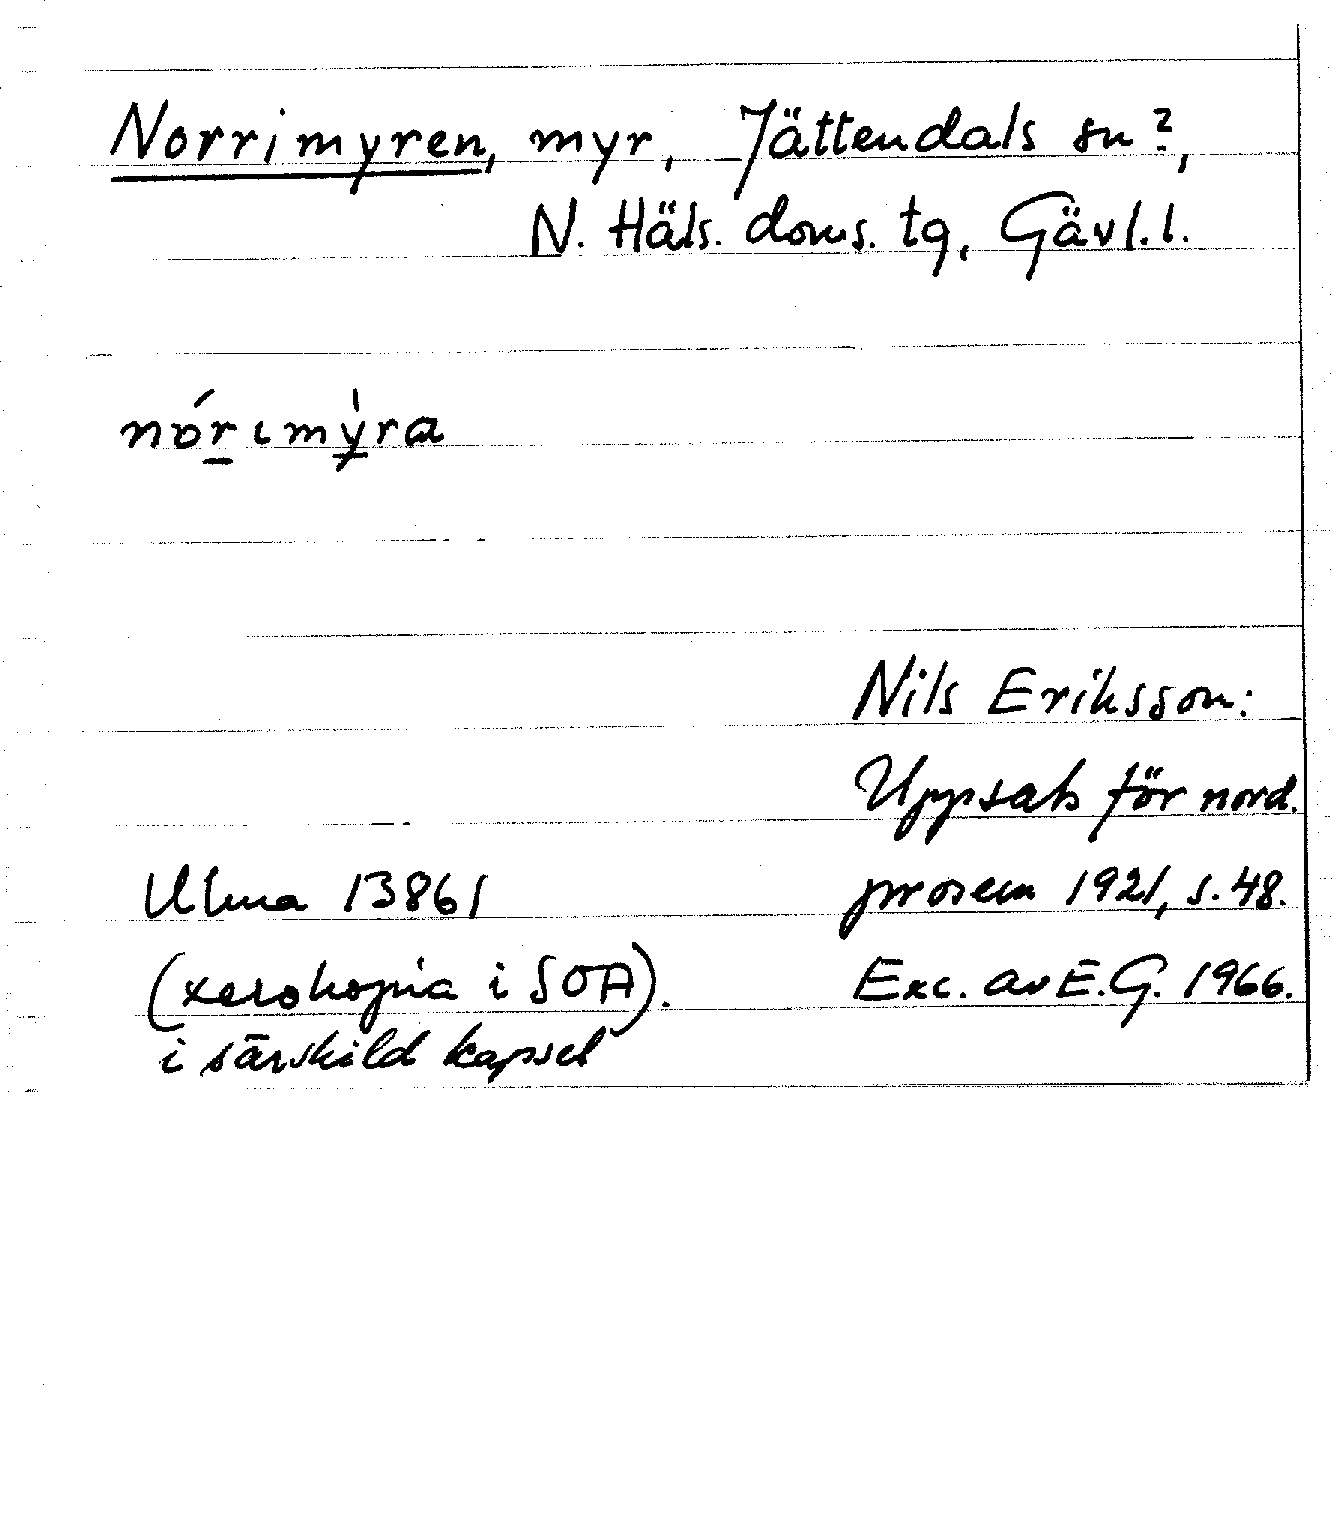 Norrimyren, myr, Jättendals sn?,
N. Häls. doms. tg, Gävl. l.
nórımýra
Nils Eriksson:
Uppsats för nord.
Ulma 13861 prosem 1921, s. 48.
(xerokopia i SOA). Exc. av E.G. 1966.
i särskild kapsel